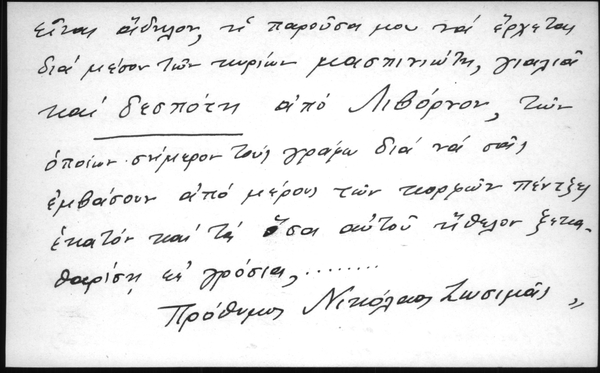 εἶναι ἄδηλον, ἡ παροῦσα μου νά ἔρχεται
διά μέσον τῶν κυρίων Μασπινιώτη, γιαλιᾶ
καί δεσπότη ἀπό Λιβόρνον, τῶν
ὁποίων σήμερον τούς γράφω διά νά σᾶς
ἐμβάσουν ἀπό μέρους τῶν κορμῶν πέντζες
ἑκατόν καί τά ὅσα αὐτοῦ ἤθελον ξεκα-
θαρίση εἰς γρόσια, ........
Πρόθυμος Νικόλαος Ζωσιμᾶς "